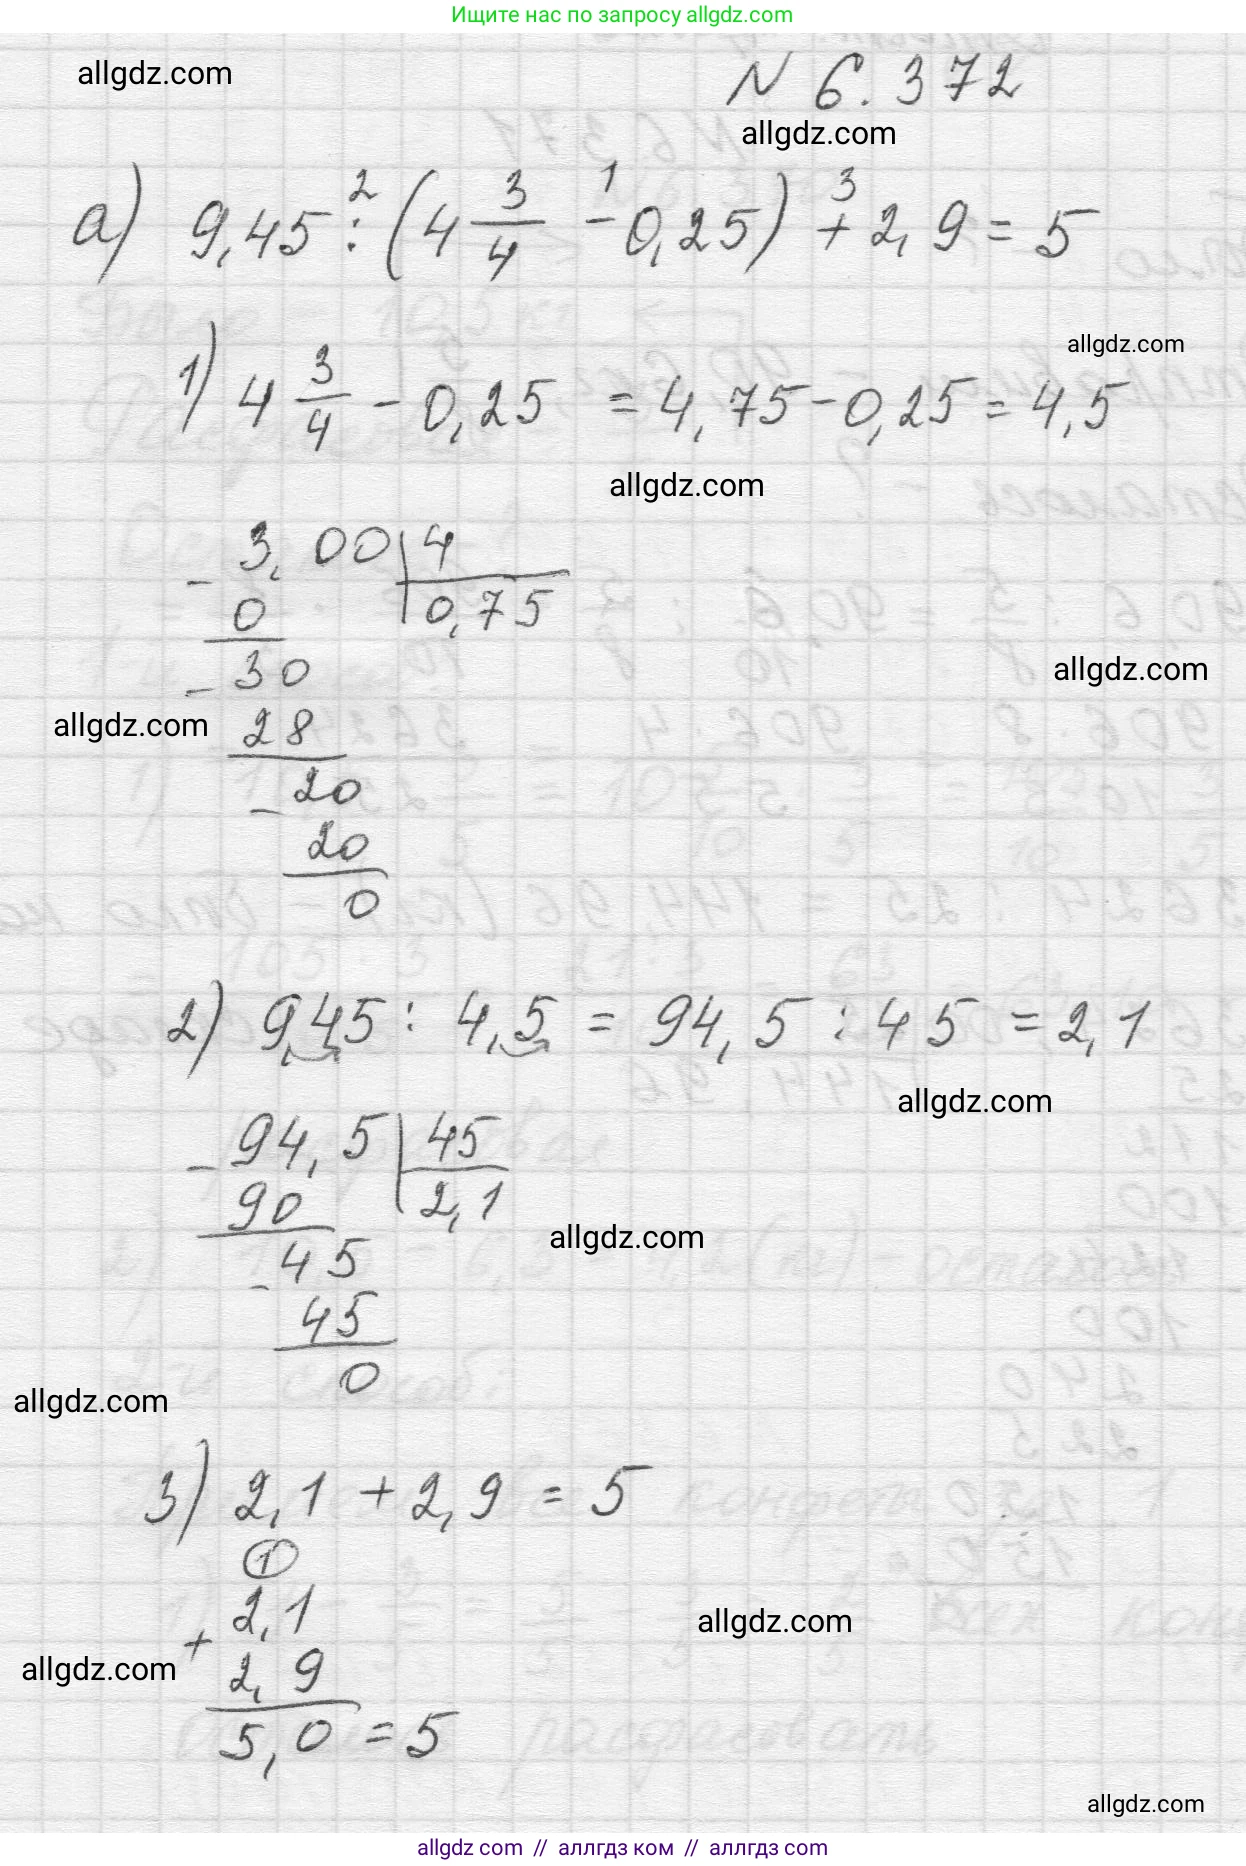 Ищите нас по запросу allgdz.com
allgdz.com
N 6.372
allgdz.com
2 1 3
а) 9,45 : (4 3/4 - 0,25) + 2,9 = 5
allgdz.com
1) 4 3/4 - 0,25 = 4,75 - 0,25 = 4,5
allgdz.com
- 3,00 | 4
0 | 0,75
- 30
allgdz.com
allgdz.com
28
- 20
20
0
2) 9,45 : 4,5 = 94,5 : 45 = 2,1
allgdz.com
- 94,5 | 45
90 | 2,1
allgdz.com
- 45
45
0
allgdz.com
3) 2,1 + 2,9 = 5
1
2,1
allgdz.com
+
allgdz.com
2,9
5,0 = 5
allgdz.com
allgdz com // аллгдз ком // аллгдз.com